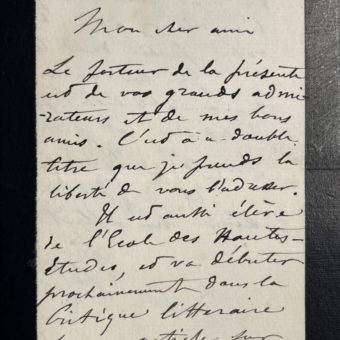 Mon cher ami
Le porteur de la présente
est de vos grands admi-
rateurs et de mes bons
amis. C'est à ce double
titre que je prends la
liberté de vous l'adresser.
Il est aussi élève
de l'Ecole des Hautes-
Etudes, et va débuter
prochainement dans la
Critique litteraire
articles sur